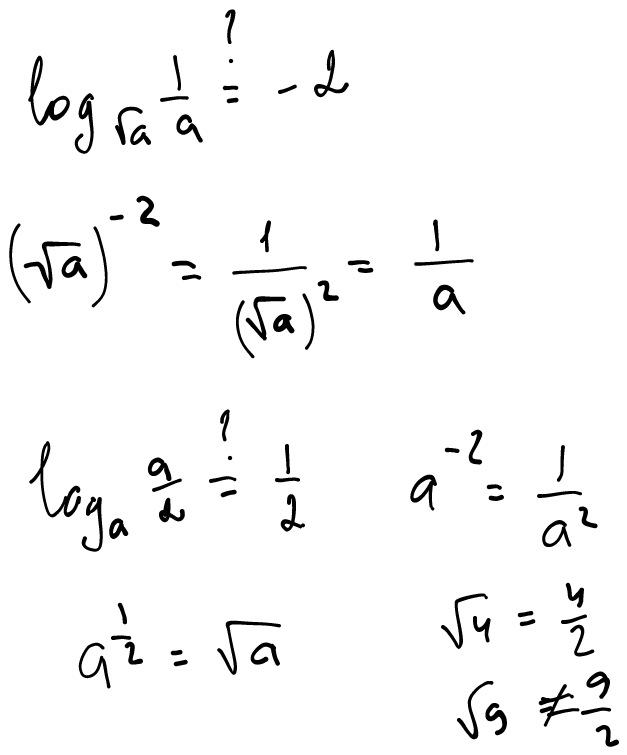 log_{√a} 1/a ?= -2
(√a)^{-2} = 1/(√a)^2 = 1/a
log_a a/2 ?= 1/2
a^{-2} = 1/a^2
a^{1/2} = √a
√4 = 4/2
√9 ≠ 9/2